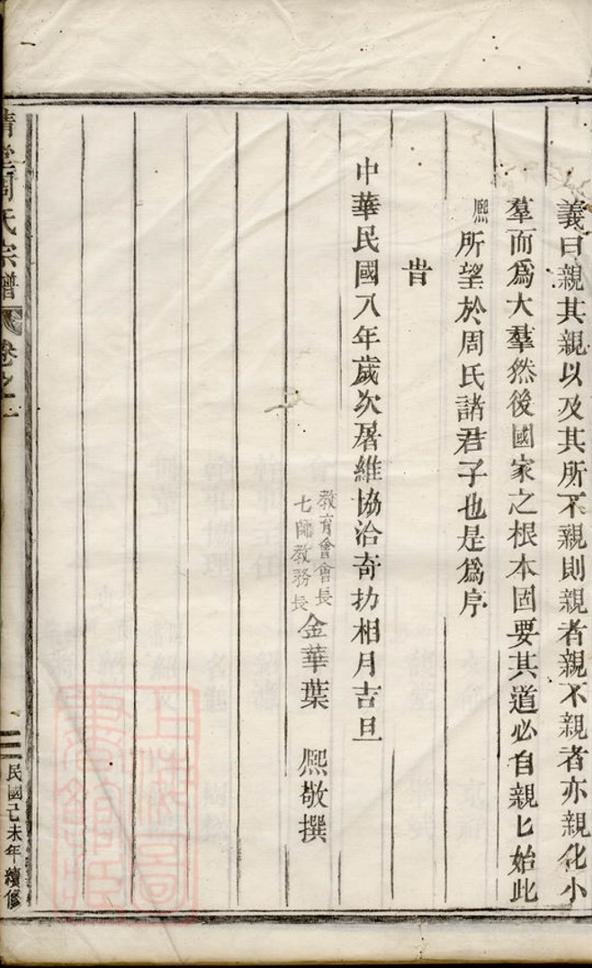 義曰親其親以及其所不親則親者親不親者亦親化小
羣而爲大羣然後國家之根本固要其道必自親匕始此
熈所望於周氏諸君子也是爲序
旹
中華民國八年歲次屠維協洽奇扐相月吉旦
教育會會長
七師教務長
金華葉熈敬撰
周氏宗譜
卷之一
三
民國己未年續修